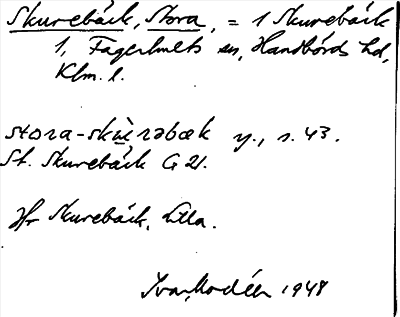 Skurebäck, Stora, = 1 Skurebäck
1, Fagerhults sn, Handbörds hd,
Klm. l.
stora-skùrəbæk y., s. 43.
St. Skurebäck G 21.
Jfr Skurebäck, Lilla.
Ivar Modéer 1948